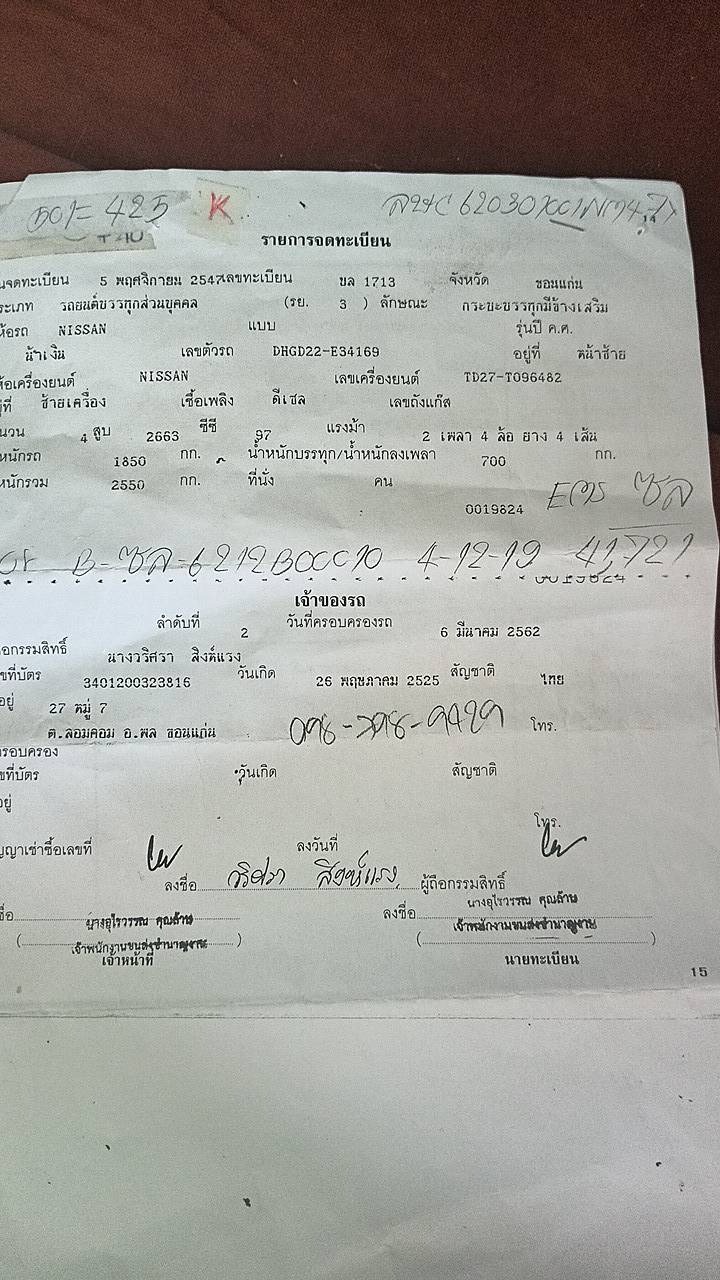 501= 425 K
รายการจดทะเบียน
นจดทะเบียน 5 พฤศจิกายน 2547 เลขทะเบียน ขล 1713 จังหวัด ขอนแก่น
ระเภท รถยนต์บรรทุกส่วนบุคคล (รย. 3 ) ลักษณะ กระบะบรรทุกมีข้างเสริม
ห้อรถ NISSAN แบบ รุ่นปี ค.ศ.
น้ำเงิน เลขตัวรถ DHGD22-E34169 อยู่ที่ หน้าซ้าย
ห้อเครื่องยนต์ NISSAN เลขเครื่องยนต์ TD27-T096482
ยู่ที่ ซ้ายเครื่อง เชื้อเพลิง ดีเซล เลขถังแก๊ส
นวน 4 สูบ 2663 ซีซี 97 แรงม้า 2 เพลา 4 ล้อ ยาง 4 เส้น
หนักรถ 1850 กก. น้ำหนักบรรทุก/น้ำหนักลงเพลา 700 กก.
หนักรวม 2550 กก. ที่นั่ง คน
0019824
B-ซล-6212B00010 4-12-19 41,721
0019824
เจ้าของรถ
ลำดับที่ 2 วันที่ครอบครองรถ 6 มีนาคม 2562
ถือกรรมสิทธิ์ นางวริศรา สิงห์แรง
ขที่บัตร 3401200323816 วันเกิด 26 พฤษภาคม 2525 สัญชาติ ไทย
อยู่ 27 หมู่ 7
ต.ลอมคอม อ.พล ขอนแก่น โทร.
รอบครอง
ขที่บัตร วันเกิด สัญชาติ
อยู่
โทร.
ญญาเช่าซื้อเลขที่ ลงวันที่
ลงชื่อ วริศรา สิงห์แรง ผู้ถือกรรมสิทธิ์
ชื่อ นางอุไรวรรณ คุณล้าน ลงชื่อ นางอุไรวรรณ คุณล้าน
( เจ้าพนักงานขนส่งชำนาญงาน ) ( เจ้าพนักงานขนส่งชำนาญงาน )
เจ้าหน้าที่ นายทะเบียน
15